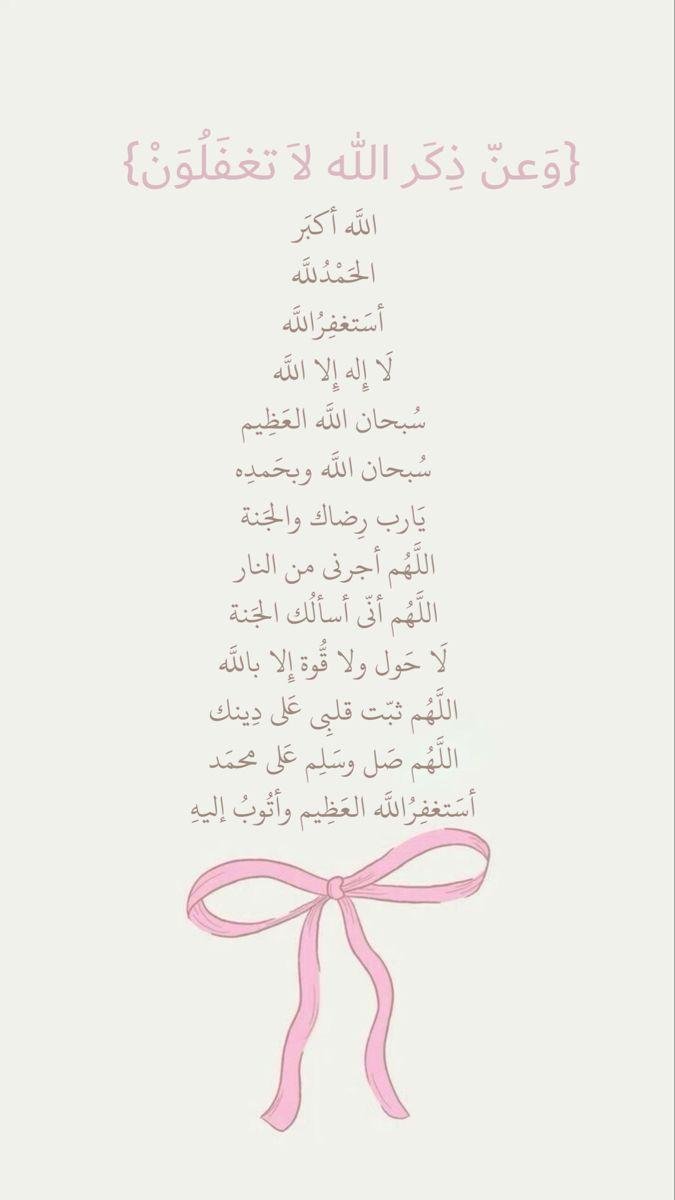 {وَعنّ ذِكَر الله لاَ تغفَلُوَنْ}
اللَّه أكبَر
الحَمْدُللَّه
أسَتغفِرُاللَّه
لَا إِله إِلا اللَّه
سُبحان اللَّه العَظِيم
سُبحان اللَّه وبحَمدِه
يَارب رِضاك والجَنة
اللَّهُم أجرنى من النار
اللَّهُم أنّى أسألُك الجَنة
لَا حَول ولا قُّوة إِلا باللَّه
اللَّهُم ثبّت قلبِى عَلى دِينك
اللَّهُم صَل وسَلِم عَلى محمَد
أسَتغفِرُاللَّه العَظِيم وأتُوبُ إليهِ